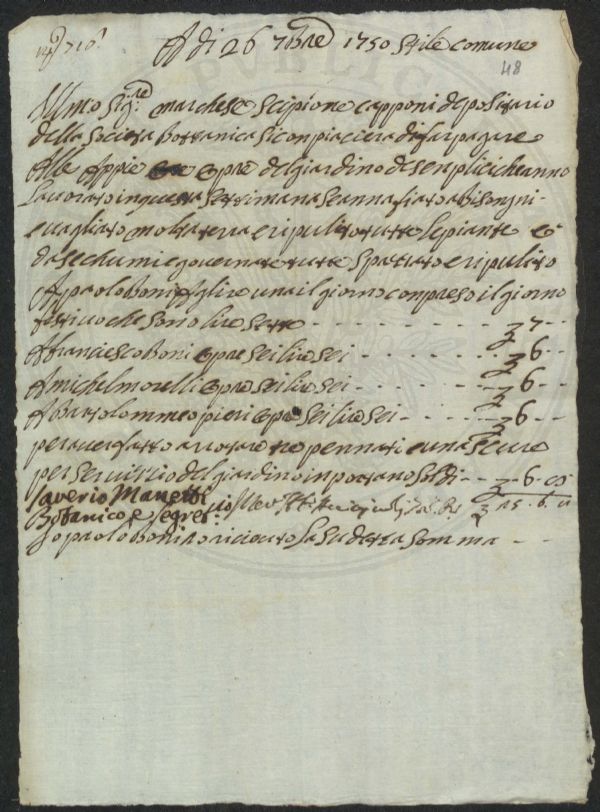 A di 26 7bre 1750 stile comune
48
Illmo Sigre marchese Scipione capponi depositario
della Società Bottanica si conpiacierà di far pagare
Alle Appie opre del giardino de senplici che anno
Lavorato in questa settimana
e vagliato molta terra e ripulito tutte le piante e
da sechumi e governate tutte spazzato e ripulito
A paolo Boni A lire una il giorno conpreso il giorno
festivo che sono lire sette - - - 7 - -
A franciesco Boni opre sei lire sei - - - 6 - -
A michel morelli opre sei lire sei - - - 6 - -
A Bartolommeo pieri opre sei lire sei - - - 6 - -
per aver fatto arrotare tre pennati e una scure
per servizio del giardino inportano soldi - - - 6 -
Saverio Manetti
Botanico e Segret.rio
Io paolo Boni ò riceuto la sudetta somma - -